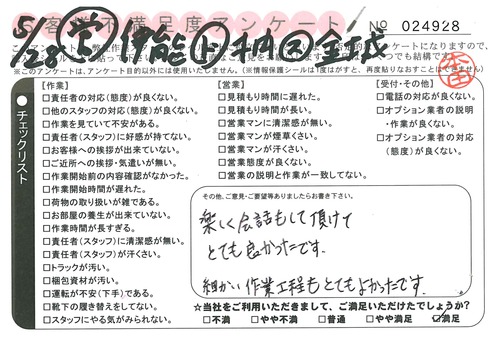 お客様不満足度アンケート
№ 024928
5/28
※このアンケートは、アンケート目的以外には使用いたしません。（※情報保護シールは1度はがすと、再度貼りなおすことはできません）
チェックリスト
【作業】
□責任者の対応（態度）が良くない。
□他のスタッフの対応（態度）が良くない。
□作業を見ていて不安がある。
□責任者（スタッフ）に好感が持てない。
□お客様への挨拶が出来ていない。
□ご近所への挨拶・気遣いが無い。
□作業開始前の内容確認がなかった。
□作業開始時間が遅れた。
□荷物の取り扱いが雑である。
□お部屋の養生が出来ていない。
□作業時間が長すぎる。
□責任者（スタッフ）に清潔感が無い。
□責任者（スタッフ）が汗くさい。
□トラックが汚い。
□梱包資材が汚い。
□運転が不安（下手）である。
□靴下の履き替えをしてない。
□スタッフにやる気がみられない。
【営業】
□見積もり時間に遅れた。
□見積もり時間が長い。
□営業マンに清潔感が無い。
□営業マンが煙草くさい。
□営業マンが汗くさい。
□営業態度が良くない。
□営業の説明と作業が一致してない。
【受付・その他】
□電話の対応が良くない。
□オプション業者の説明・作業が良くない。
□オプション業者の対応（態度）が良くない。
その他、ご意見・ご要望等ありましたらお書き下さい。
楽しく会話もして頂けて
とても良かったです。
細かい作業工程もとてもよかったです。
★当社をご利用いただきまして、ご満足いただけたでしょうか？
□不満 □やや不満 □普通 □やや満足 ☑満足